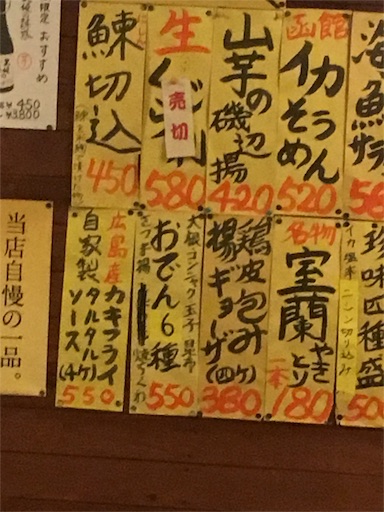 おすすめ
450
3,800
鰊切込
450
生
売切
580
山芋の磯辺揚
420
函館
イカそうめん
520
海鮮サラ
58
当店自慢の一品。
広島産カキフライ
自家製タルタルソース(4ケ)
550
大根 コンニャク 玉子 昆布
おでん6種
焼ちくわ
550
鶏皮包み
揚ギョーザ(四ケ)
380
名物
室蘭やきとり
一本
180
珍味四種盛
イカ塩辛 ニシン切り込み
50